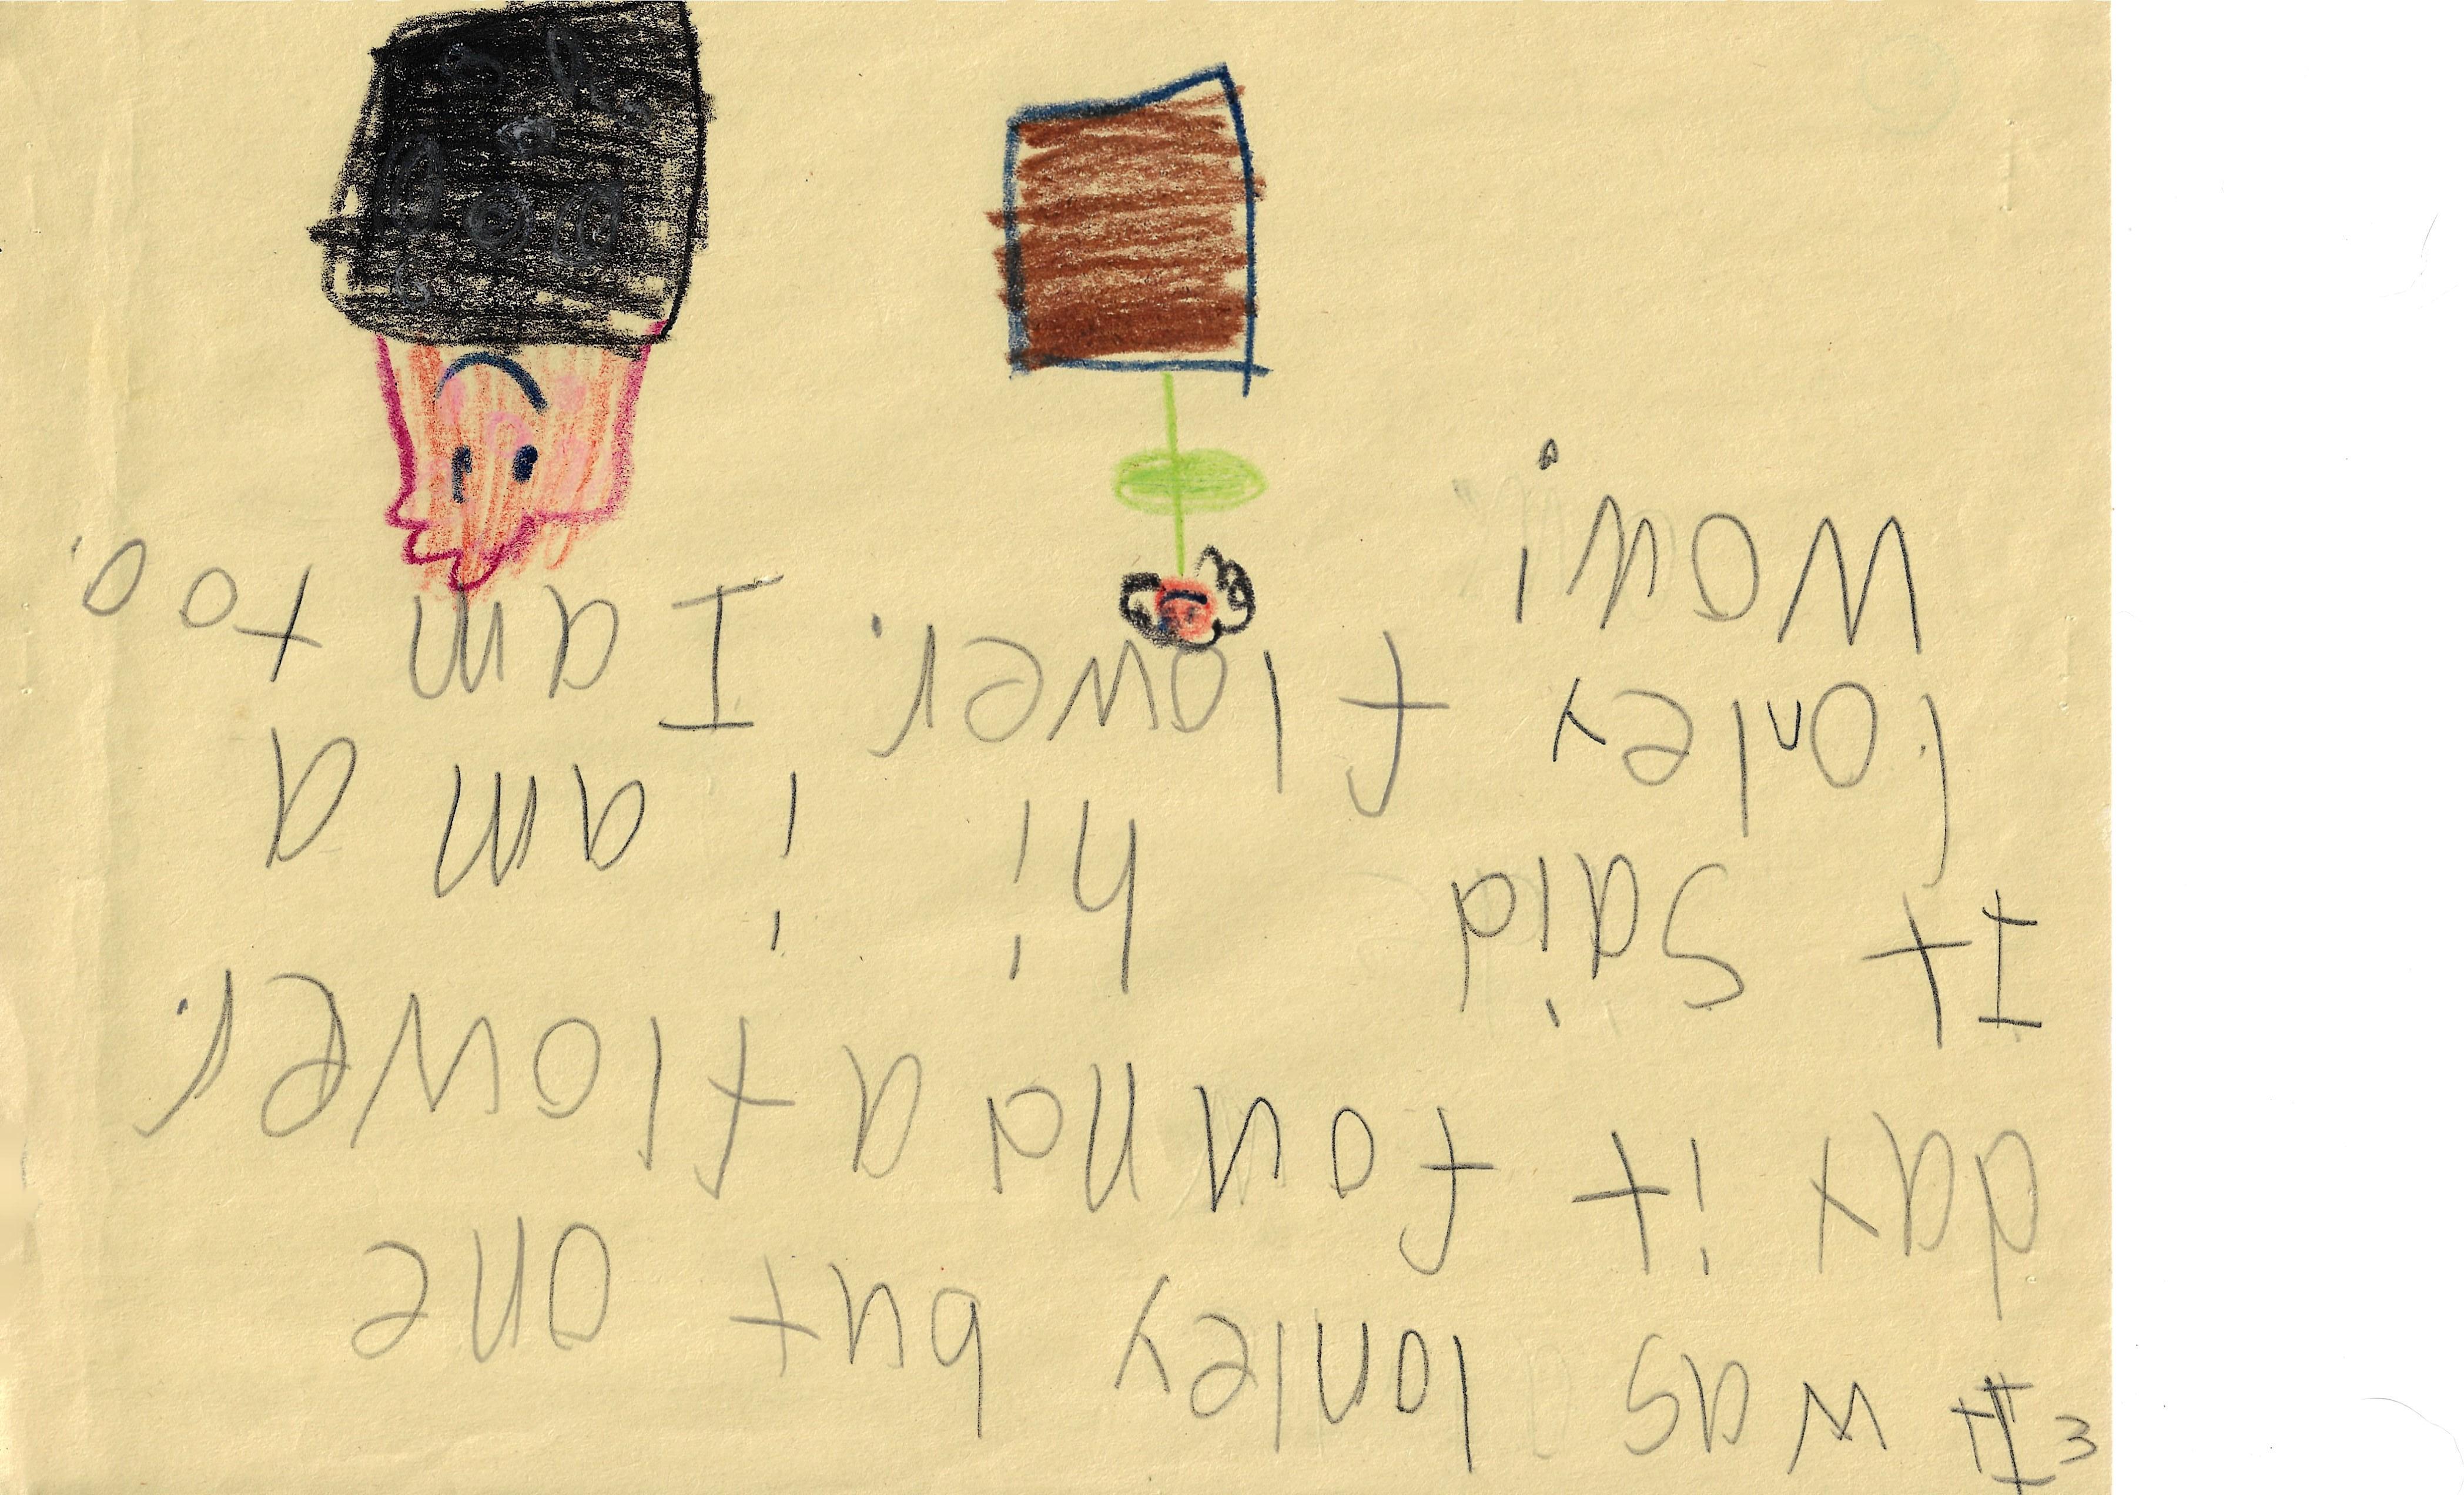 3 It was lonley but one
day it found a flower.
It said hi i am a
lonley flower. I am too.
wow!